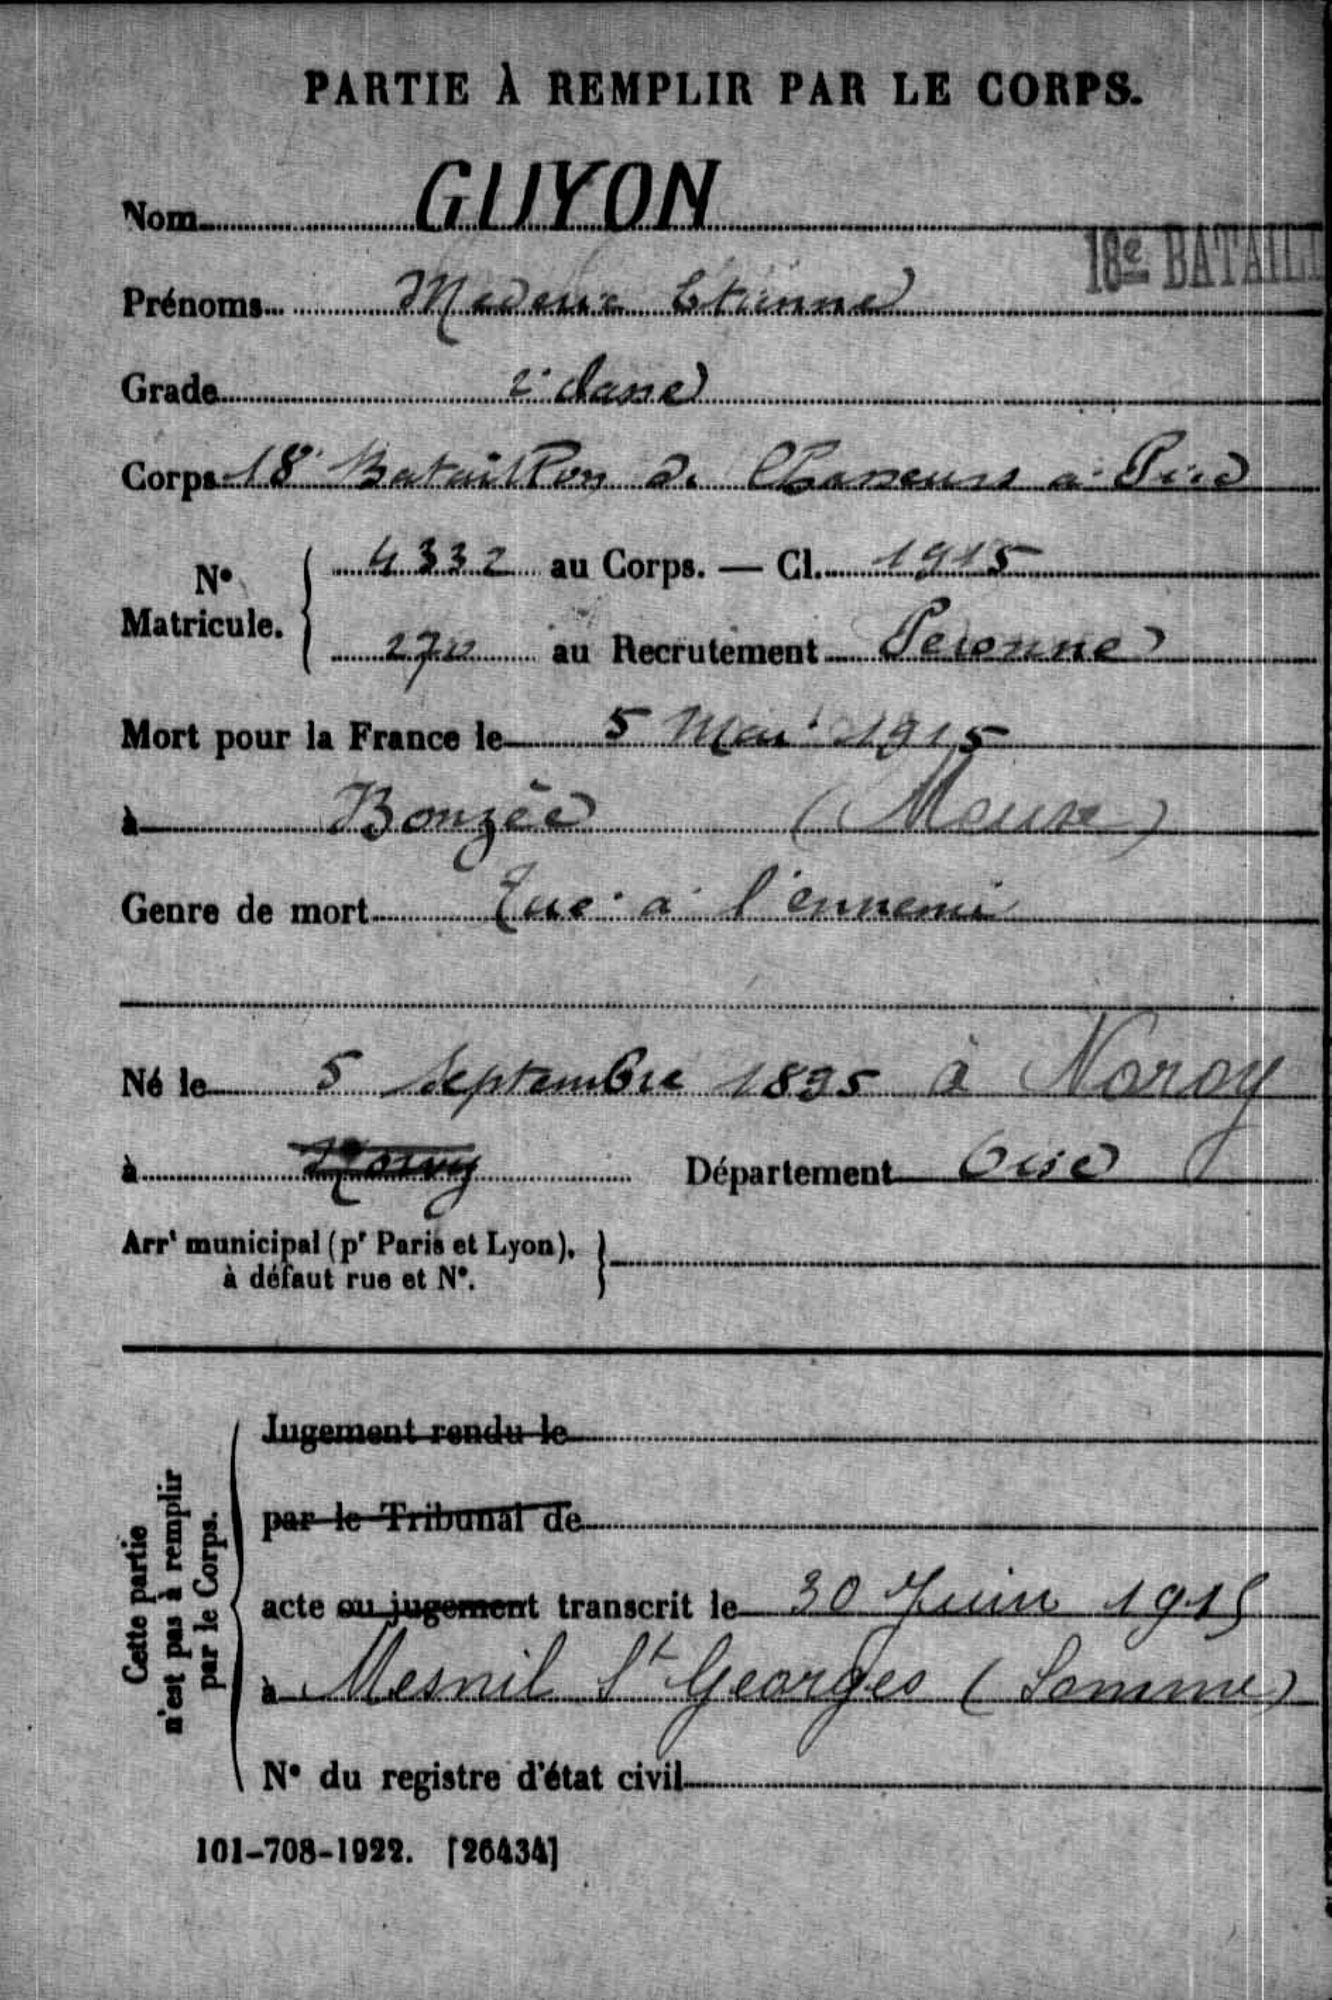 PARTIE À REMPLIR PAR LE CORPS.
Nom GUYON
18e BATAILL
Prénoms Etienne
Grade 2e classe
Corps 18e Bataillon de Chasseurs à Pied
N° Matricule. 4332 au Corps. — Cl. 1915
au Recrutement Peronne
Mort pour la France le 5 Mai 1915
à Bonzée (Meuse)
Genre de mort Tué à l'ennemi
Né le 5 Septembre 1895 à Noroy
à Département Oise
Arrt municipal (pr Paris et Lyon),
à défaut rue et N°.
Cette partie
n'est pas à remplir
par le Corps.
Jugement rendu le
par le Tribunal de
acte ou jugement transcrit le 30 Juin 1915
à Mesnil St Georges (Somme)
N° du registre d'état civil
101-708-1922. [26434]